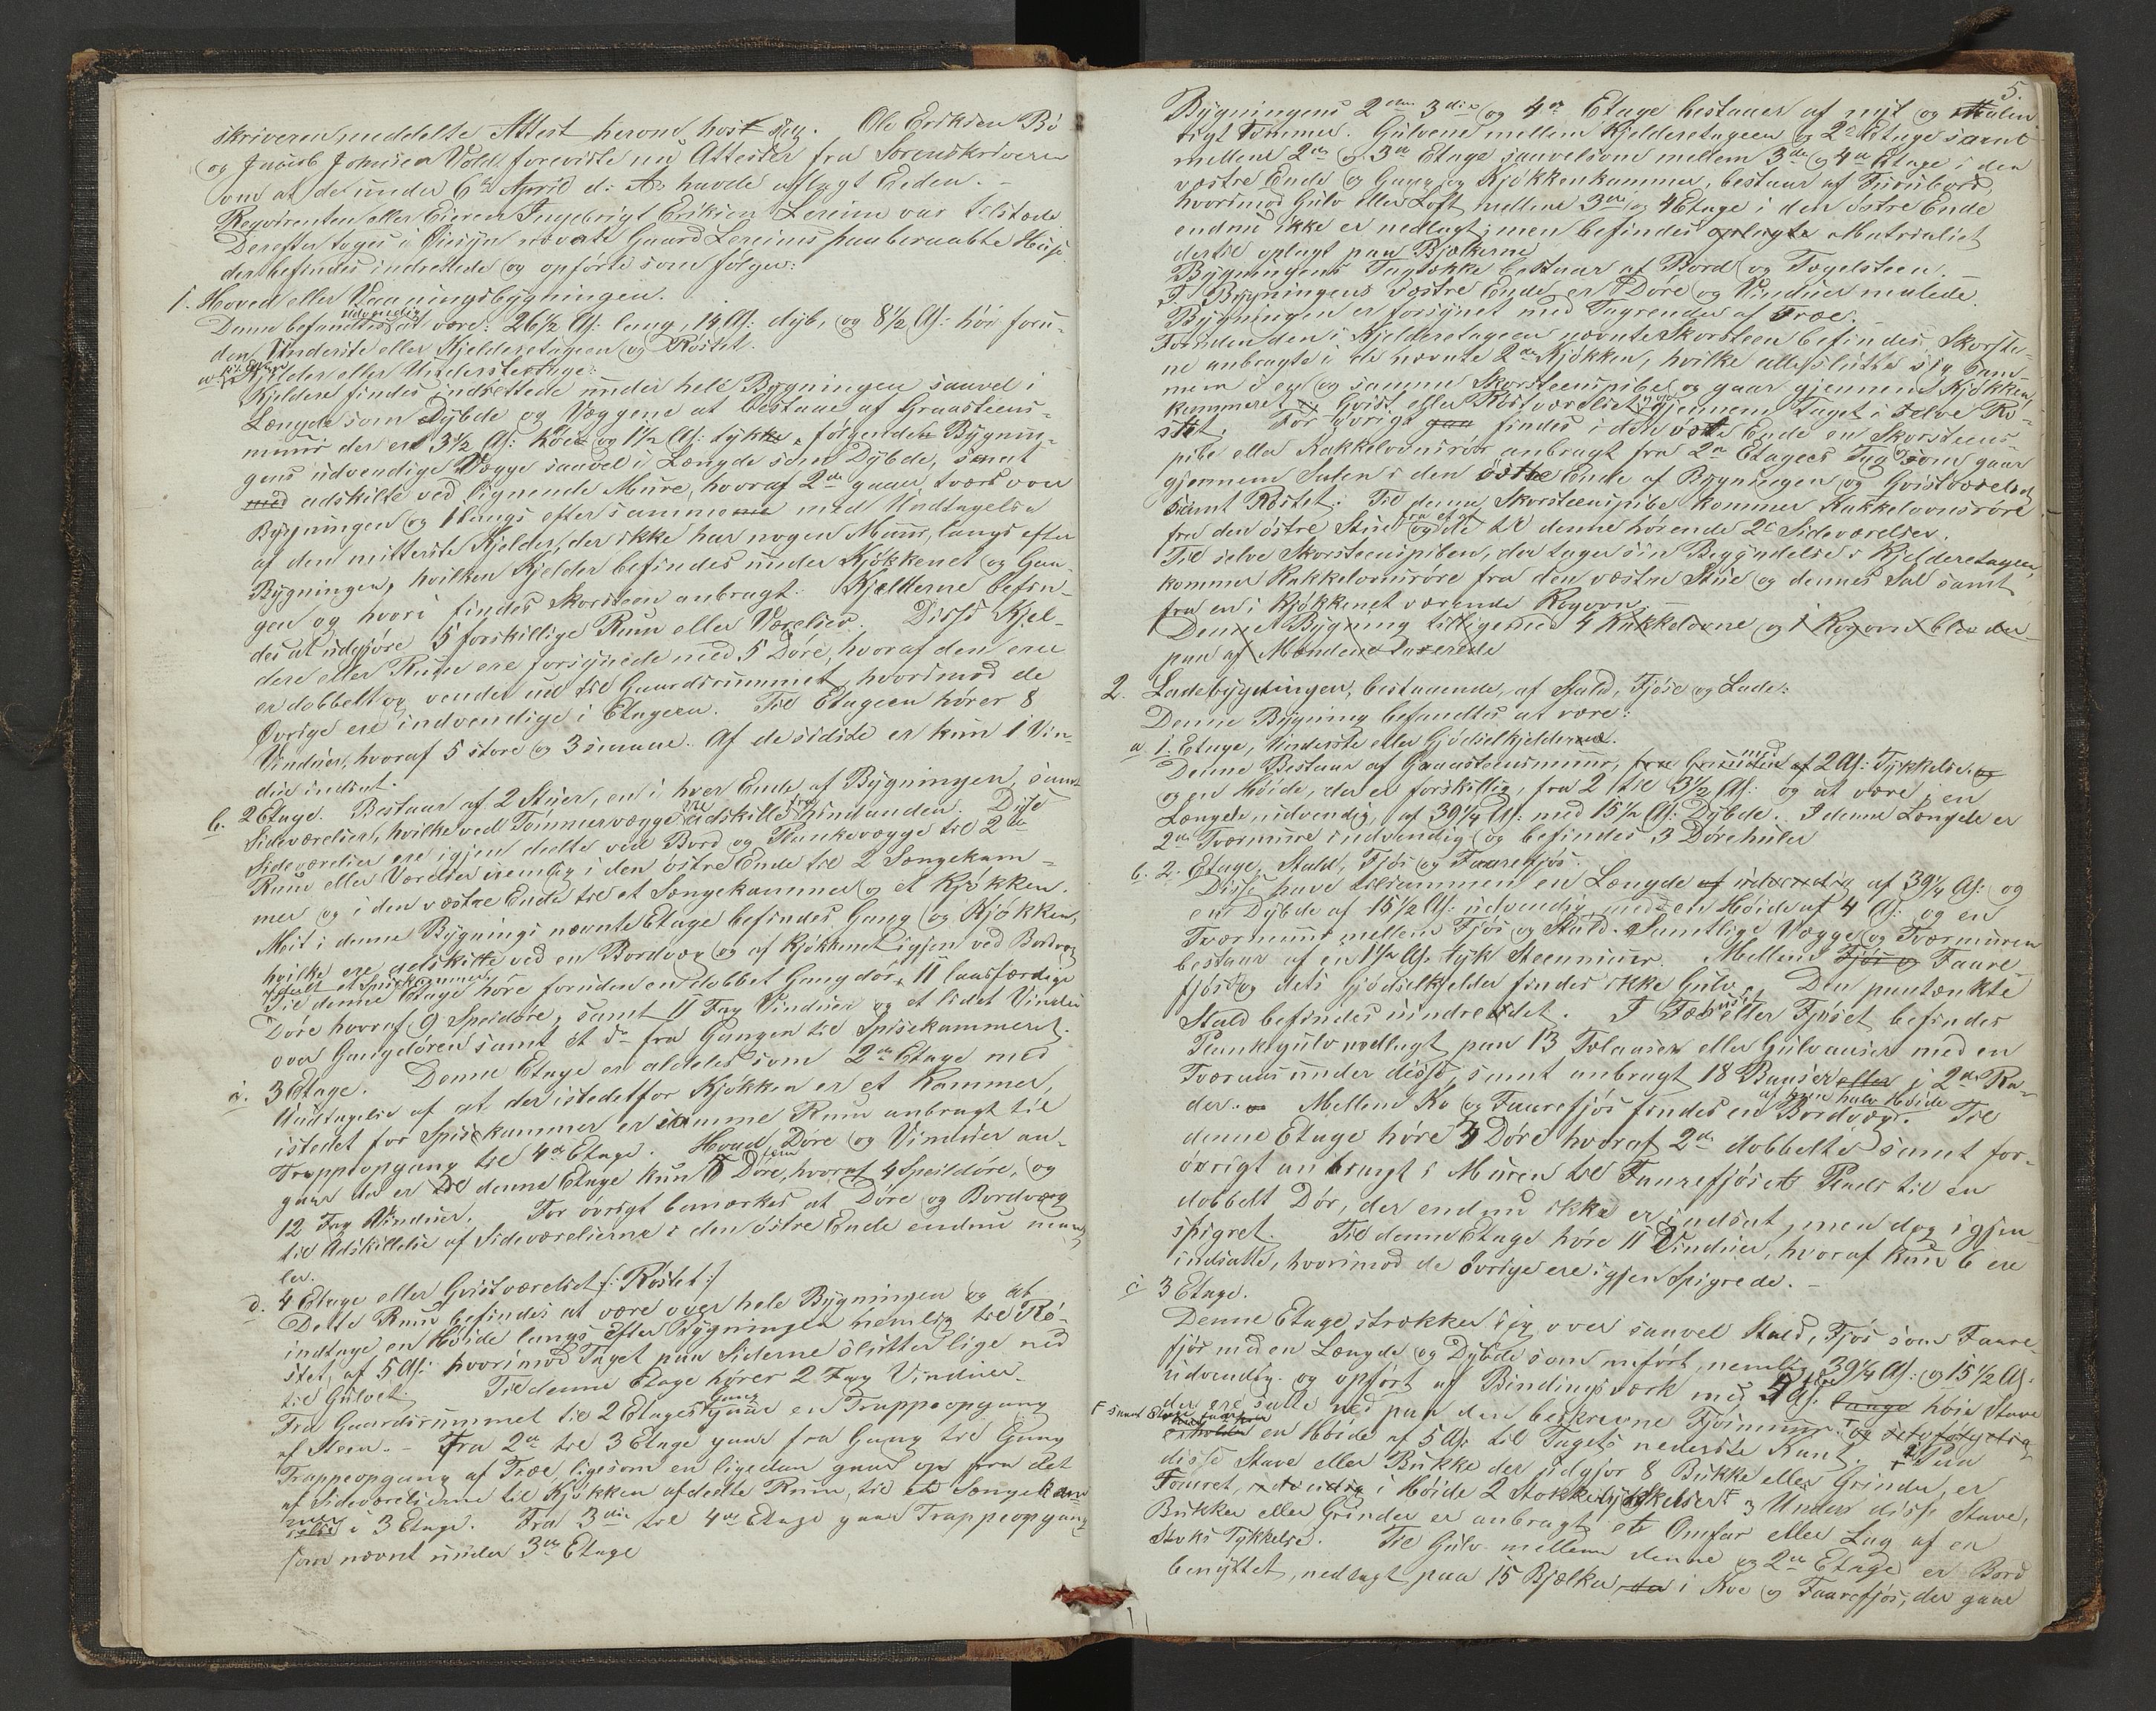 skriveren meddelte Attest herom hos sig. Ole Eriksen Bö
og Jacob Johnsen Vold foreviste nu Attester fra Sorenskriveren
om at de under 6te April d: A: havde aflagt Eeden. -
Reqvirenten eller Eieren Ingebrigt Eriksen Lereim var tilstæde
Derefter toges i Øiesyn nævnte Gaard Lereims paaberaabte Huse
der befindes indrettede og opførte som følger:
1. Hoved eller Vaaningsbygningen.
Denne befandtes udvendig at være: 26½ Al: lang, 14 Al: dyb, og 8½ Al: høi foru-
den Underste eller Kjelderetageen og Röstet.
a. 1st Etage Kjelder eller Understeetage:
Kjeldere findes indrettede under hele Bygningen saavel i
Længde som Dybde og Væggene at bestaae af Graasteens-
muur der er 3½ Al: høie og 1½ Al: tykke, følgende Bygnin-
gens udvendige Vægge saavel i Længde som Dybde, samt
med adskilte ved lignende Mure, hvoraf 2de gaaer tvers over
Bygningen og 1 langs efter samme med Undtagelse
af den mitterste Kjelder, der ikke har nogen Muur, langs efter
Bygningen, hvilken Kjelder befindes under Kjøkkenet og Gan-
gen og hvori findes Skorsteen anbragt. Kjelderne befin-
des at udgjøre 5 forskillige Rum eller Værelser. Disse Kjel-
dere eller Rum ere forsynede med 5 Döre, hvoraf den ene
er dobbelt og vender ud til Gaardsrummet, hvorimod de
Øvrige ere indvendige i Etageen. Til Etageen hører 8
Vinduer, hvoraf 5 store og 3 smaae. Af de sidste er kun 1 Vin-
due indsat.
b. 2 Etage. Bestaar af 2 Stuer, en i hver Ende af Bygningen, samt
Sideværelser, hvilke ved Tømmervægge ere adskilte fra hinanden. Disse
Sideværelser ere igjen deelte ved Bord og Plankevægge til 2de
Rum eller Værelser nemlig i den östre Ende til 2 Sengekam-
mer og i den vestre Ende til et Sengekammer og et Kjøkken.
Mit i denne Bygnings nævnte Etage befindes Gang og Kjøkken,
hvilke ere adskilte ved en Bordvæg og af Kjøkkenet igjen ved Bordvæg
afdeelt et Spisekammer
Til denne Etage høre foruden en dobbet Gangdør, 11 laasfærdige
Döre hvoraf 9 Speildøre, samt 11 Fag Vinduer og et lidet Vindue
over Gangdøren samt et do fra Gangen til Spisekammeret.
c. 3 Etage. Denne Etage er aldeles som 2den Etage med
Undtagelse af at der istedetfor Kjøkken er et Kammer,
istedet for Spisekammer er i samme Rum anbragt til
Trappeopgang til 4de Etage. Hvad Döre og Vinduer an-
gaar da er til denne Etage kun 5 fem Döre, hvoraf 4 Speildöre, og
12 Fag Vinduer. For øvrigt bemærkes at Döre og Bordvæg
til Adskillelse af Sideværelserne i den östre Ende endnu mang-
ler.
d. 4 Etage eller Qvistværelset /: Röstet :/
Dette Rum befindes at være over hele Bygningen og at
indtage en Høide langs efter Bygningen nemlig til Rö-
stet, af 5 Al: hvorimod Taget paa Siderne slutter lige ned
til Gulvet. Til denne Etage hører 2 Fag Vinduer.
Fra Gaardsrummet til 2 Etages Gang gaaer en Trappeopgang
af Steen. - Fra 2de til 3 Etage gaar fra Gang til Gang
Trappeopgang af Træ, ligesom en ligedan gaar op fra det
af Sideværelserne til Kjøkken afdeelte Rum, til et Sengekam-
mer i 3 Etage. Fra 3die til 4de Etage gaar Trappeopgang
som nævnt under 3de Etage
5.
Bygningens 2den 3die og 4de Etage bestaaer af nyt og
tigt Tømmer. Gulvene mellem Kjelderetageen og 2de Etage samt
mellem 2de og 3de Etage saavelsom mellem 3de og 4de Etage i den
vestre Ende og Gang og Kjøkkenkammer, bestaar af Furubord,
hvorimod Gulv eller Loft mellem 3de og 4 Etage i den östre Ende
endnu ikke er nedlagt; men befindes oplagte Materialiet
dertil oplagt paa Bjelkerne
Bygningens Tagtække bestaar af Bord og Tegelsteen. -
I Bygningens vestre Ende er Döre og Vinduer malede.
Bygningen er forsynet med Tagrender af Træ. -
Foruden den i Kjelderetageen nævnte Skorsteen befindes Skorste-
ne anbragte i de nævnte 2de Kjøkken, hvilke alle slutte sig sam-
men i en og samme Skorsteenspibe og gaar gjennem Kjøkken-
kammeret og Qvist eller Röstværelset gjennem Taget i selve Rö-
stet. For øvrigt findes i den östre Ende en Skorsteens-
pibe eller Kakkelovnsrör anbragt fra 2de Etagees som gaar
gjennem Salen i den östre Ende af Bygningen og Qvistværelset
samt Röstet. Til denne Skorsteenspibe kommer Kakkelovnsröre
fra den östre Stue og fra et af de til denne hörende 2de Sideværelser.
Til selve Skorsteenspiben, der tager sin Begyndelse i Kjelderetageen,
kommer Kakkelovnsröre fra den vestre Stue og dennes Sal samt
fra en i Kjøkkenet værende Kogovn. -
Denne Bygning tilligemed 4 Kakkelovne og 1 Kogovn blev der-
paa af Mændene Taxerede
2. Ladebygningen, bestaaende, af Stald, Fjöse og Lade:
Denne Bygning befandtes at være:
a. 1. Etage, Underste eller Gjödselkjelderne.
Denne Bestaar af Graasteensmuur, fra Grunden af med 2 Al: Tykkelse og
og en Høide, der er forskillig, fra 2 til 3½ Al: og at være i en
Længde, udvendig, af 39¼ Al: med 15½ Al: Dybde. I denne Længde er
2de Tvermure indvendig og befindes 3 Dörehuler
b. 2. Etage, Stald, Fjös og Faarefjös.
Disse have tilsammen en Længde af udvendig af 39¼ Al: og
en Dybde af 15½ Al: udvendig, med en Høide af 4 Al: og en
Tvermuur mellem Fjös og Stald. Samtlige Vægge og Tvermuren
bestaar af en 1½ Al: tyk Steenmuur. Mellem Fjös og Faare-
fjös og dets Gjödselkjelder findes ikke Gulv. Den paatænkte
Stald befindes uindredet. I Fæhuset eller Fjöset befindes
Plankegulv nedlagt paa 13 Tølaaser eller Gulvaaser med en
Tveraas under disse, samt anbragt 18 Baaser efter i 2de Ra-
der. Mellem Ko og Faarefjös findes en Bordvæg af sin halve Høide. Til
denne Etage höre 3 Döre hvoraf 2de dobbelte samt for-
övrigt anbragt i Muren til Faarefjös et Plads til en
dobbelt Dör, der endnu ikke er indsat, men dog igjen-
spigret. Til denne Etage höre 11 Vinduer, hvoraf kun 6 ere
indsatte, hvorimod de övrige ere igjen Spigrede. -
c. 3 Etage.
Denne Etage strækker sig over saavel Stald, Fjös som Faare-
fjös med en Længde og Dybde som anført, nemlig 39¼ Al: og 15½ Al:
udvendig og opført af Bindingsværk med 4 Al: lange høie Stave
der ere satte ned paa den beskrevne Fjösmuur og selvfølgelig
en Høide af 5 Al: til Tagets nederste Kant. Paa
disse Stave eller Bukke der udgjør 8 Bukke eller Grinder, er
Foeret, udvendig i Høide 2 Stokketykkelser. Under disse Stave,
Bukker eller Grinder er anbragt et Omfar eller Lag af en
Stoks Tykkelse. Til Gulv mellem denne og 2de Etage er Bord
benyttet, nedlagt paa 15 Bjelker, der i Koe og Faarefjös, der gaae